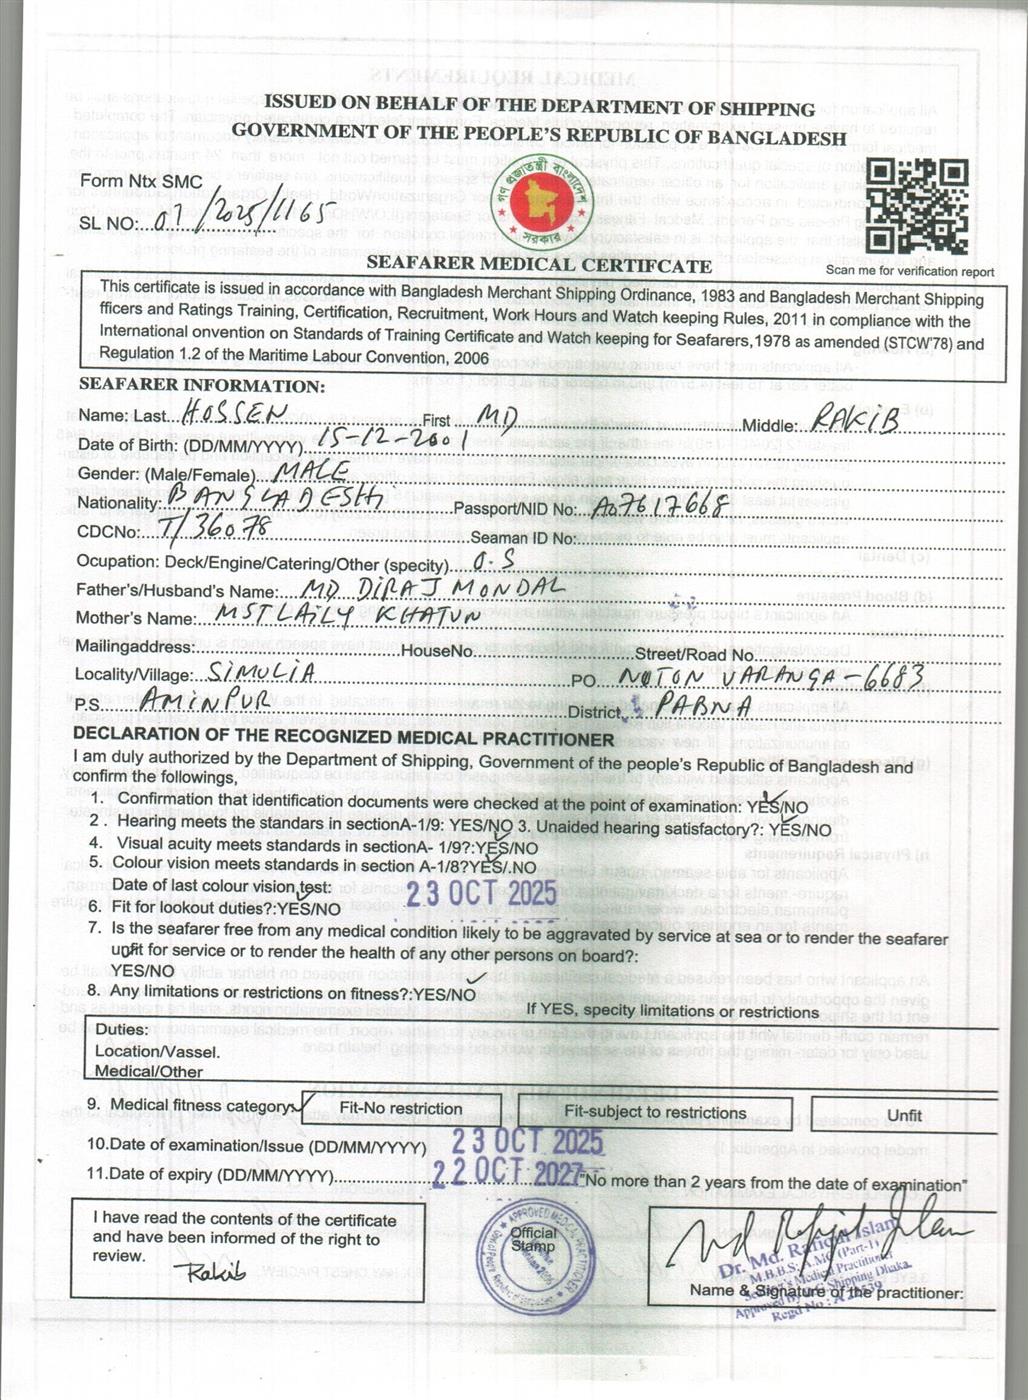 ISSUED ON BEHALF OF THE DEPARTMENT OF SHIPPING
GOVERNMENT OF THE PEOPLE'S REPUBLIC OF BANGLADESH
Form Ntx SMC
SL NO: 07/2025/1165
গণপ্রজাতন্ত্রী বাংলাদেশ
সরকার
Scan me for verification report
SEAFARER MEDICAL CERTIFCATE
This certificate is issued in accordance with Bangladesh Merchant Shipping Ordinance, 1983 and Bangladesh Merchant Shipping
fficers and Ratings Training, Certification, Recruitment, Work Hours and Watch keeping Rules, 2011 in compliance with the
International onvention on Standards of Training Certificate and Watch keeping for Seafarers,1978 as amended (STCW'78) and
Regulation 1.2 of the Maritime Labour Convention, 2006
SEAFARER INFORMATION:
Name: Last HOSSEN First MD Middle: RAKIB
Date of Birth: (DD/MM/YYYY) 15-12-2001
Gender: (Male/Female) MALE
Nationality: BANGLADESHI Passport/NID No: A07617668
CDCNo: T/36078 Seaman ID No:
Ocupation: Deck/Engine/Catering/Other (specity) O.S
Father's/Husband's Name: MD DIRAJ MONDAL
Mother's Name: MST LAILY KHATUN
Mailingaddress: HouseNo. Street/Road No.
Locality/Village: SIMULIA PO NOTON VARANGA-6683
P.S. AMINPUR District PABNA
DECLARATION OF THE RECOGNIZED MEDICAL PRACTITIONER
I am duly authorized by the Department of Shipping, Government of the people's Republic of Bangladesh and
confirm the followings,
1. Confirmation that identification documents were checked at the point of examination: YES/NO
2 . Hearing meets the standars in sectionA-1/9: YES/NO 3. Unaided hearing satisfactory?: YES/NO
4. Visual acuity meets standards in sectionA- 1/9?:YES/NO
5. Colour vision meets standards in section A-1/8?YES/.NO
Date of last colour vision test: 23 OCT 2025
6. Fit for lookout duties?:YES/NO
7. Is the seafarer free from any medical condition likely to be aggravated by service at sea or to render the seafarer
upfit for service or to render the health of any other persons on board?:
YES/NO
8. Any limitations or restrictions on fitness?:YES/NO
If YES, specify limitations or restrictions
Duties:
Location/Vassel.
Medical/Other
9. Medical fitness category Fit-No restriction Fit-subject to restrictions Unfit
10.Date of examination/Issue (DD/MM/YYYY) 23 OCT 2025
11.Date of expiry (DD/MM/YYYY) 22 OCT 2027 "No more than 2 years from the date of examination"
I have read the contents of the certificate
and have been informed of the right to
review.
Rakib
APPROVED MEDICAL PRACTITIONER
Official
Stamp
Md Rafiqul Islam
Dr. Md. Rafiqul Islam
M.B.B.S; A.M.P (Part-1)
Seafarer's Medical Practitioner
Approved by D.G Shipping Dhaka.
Name & Signature of the practitioner: